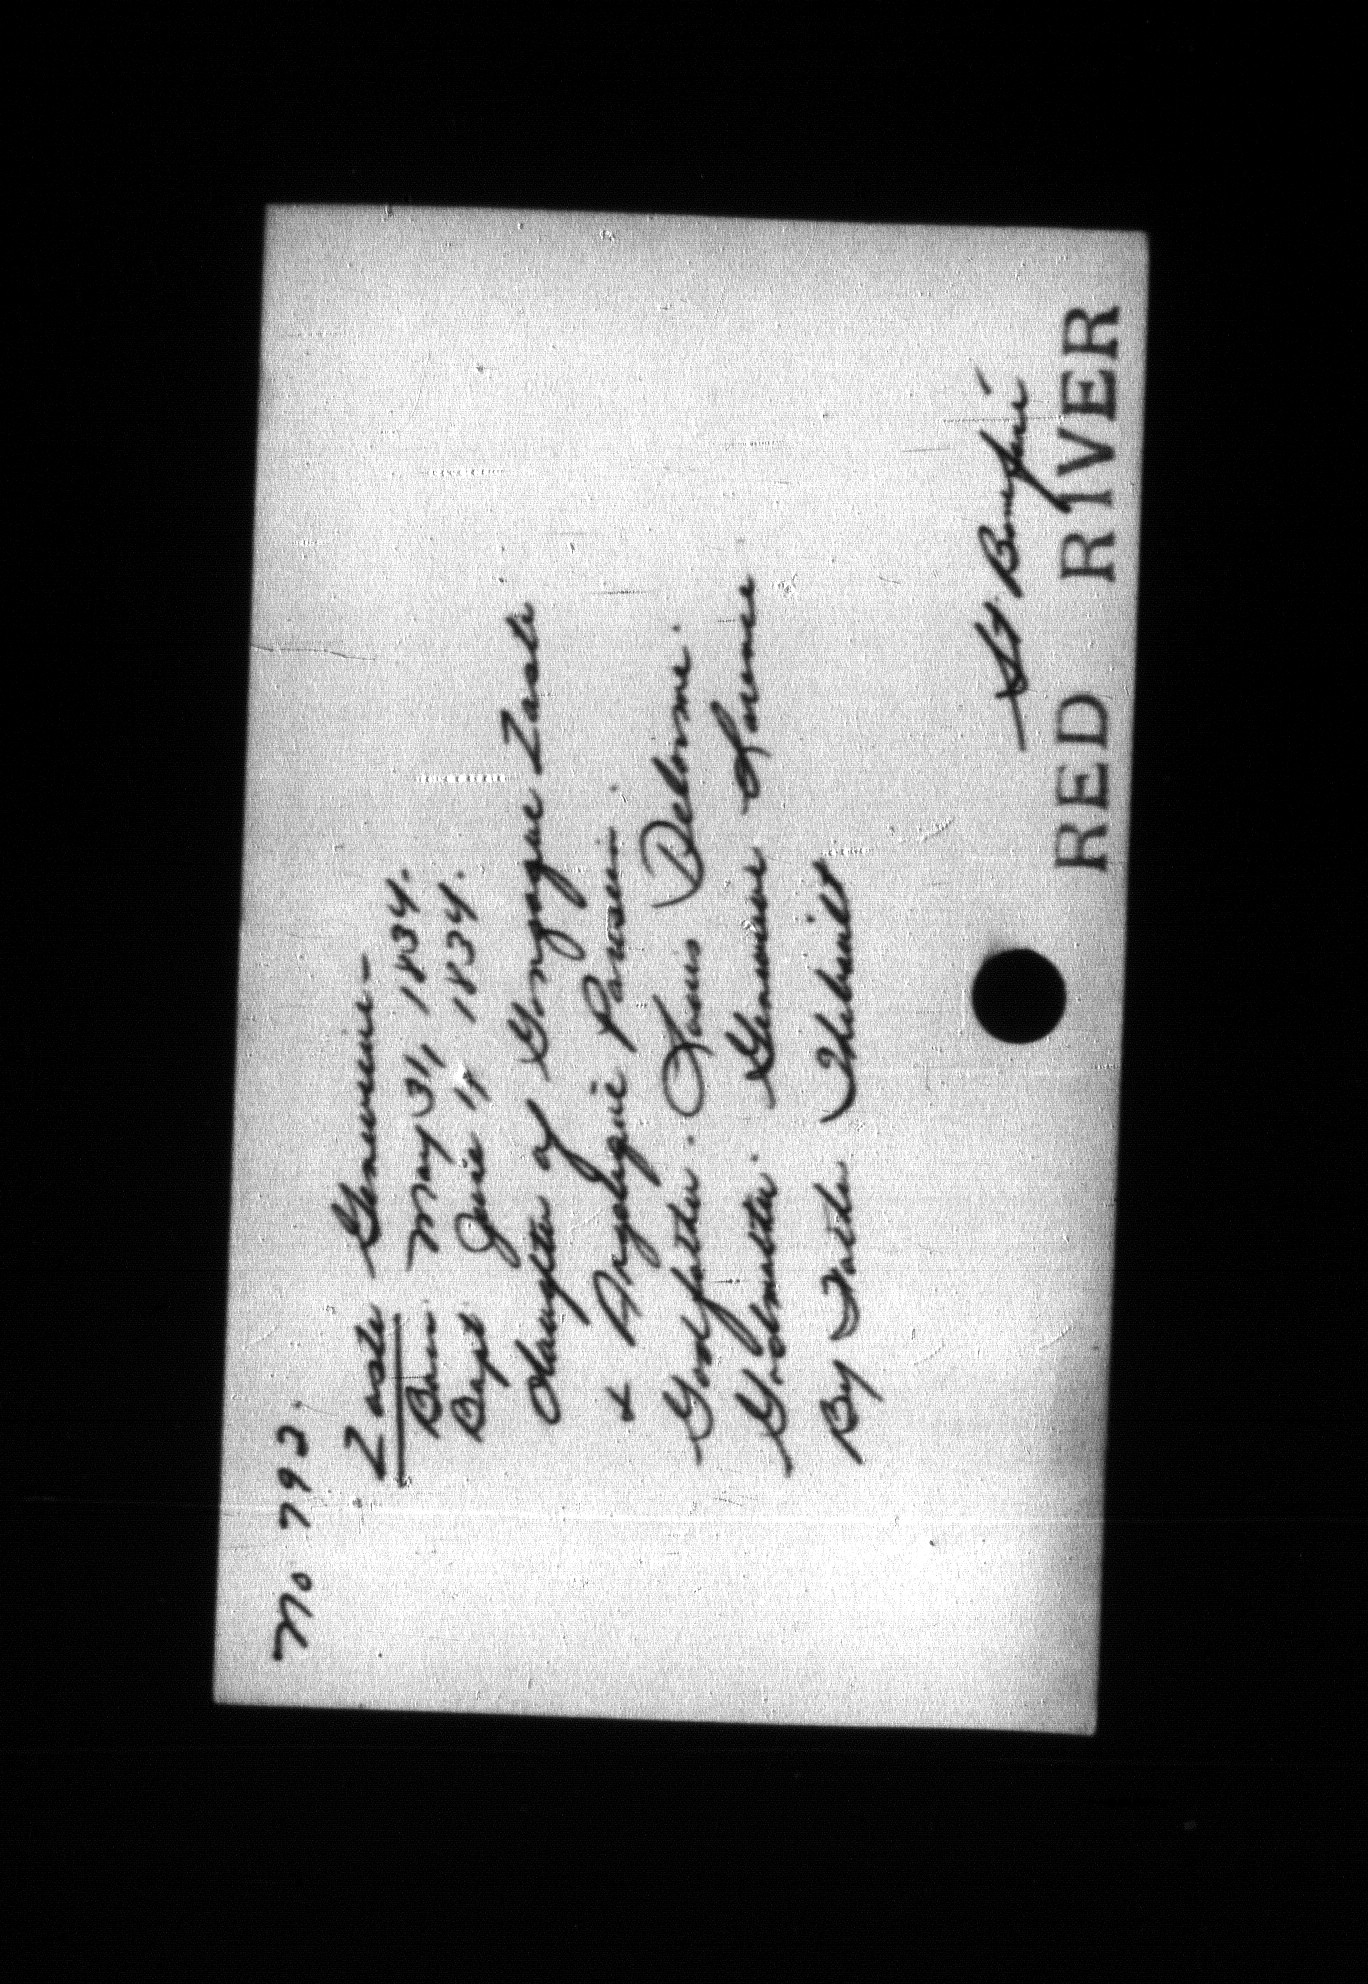 No 793.
Zaste Genevieve -
Born May 31, 1834.
Bapt June 4 1834.
daughter of Gonzague Zaste
& Angelique Parisien.
Godfather. Louis Delorme.
Godmother. Genevieve
By Father Thibault
St. Boniface
RED RIVER